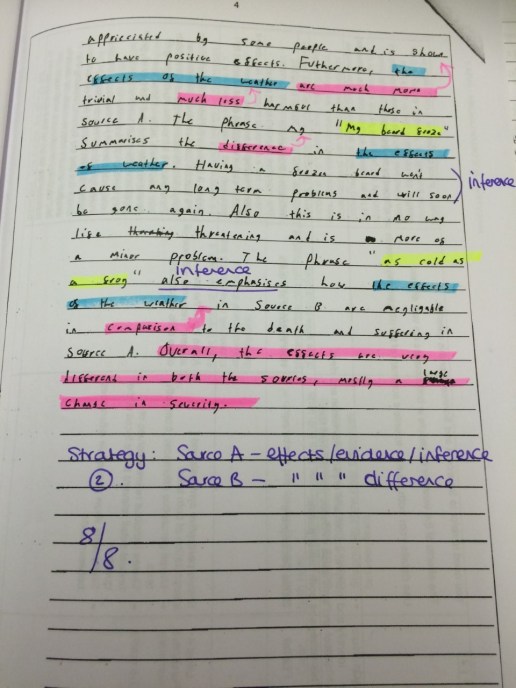 4
appricciated by some people and is show
to have positive effects. Futhermore, the
effects of the weather are much more
trivial and much less harmful than those in
Source A. The phrase my "My beard froze"
Summarises the difference in the effects
of weather. Having a frozen beard won't
cause any long term problems and will soon
inference
be gone again. Also this is in no way
life threatning threatening and is more of
a minor problem. The phrase "as cold as
inference
a frog" also emphasises how the effects
of the weather in Source B are negligable
in comparison to the death and suffering in
Source A. Overall, the effects are very
different in both the sources, mostly a large
change in severity.
Strategy: Sorce A - effects/evidence/inference
2. Sorce B - " " " difference
8/8.